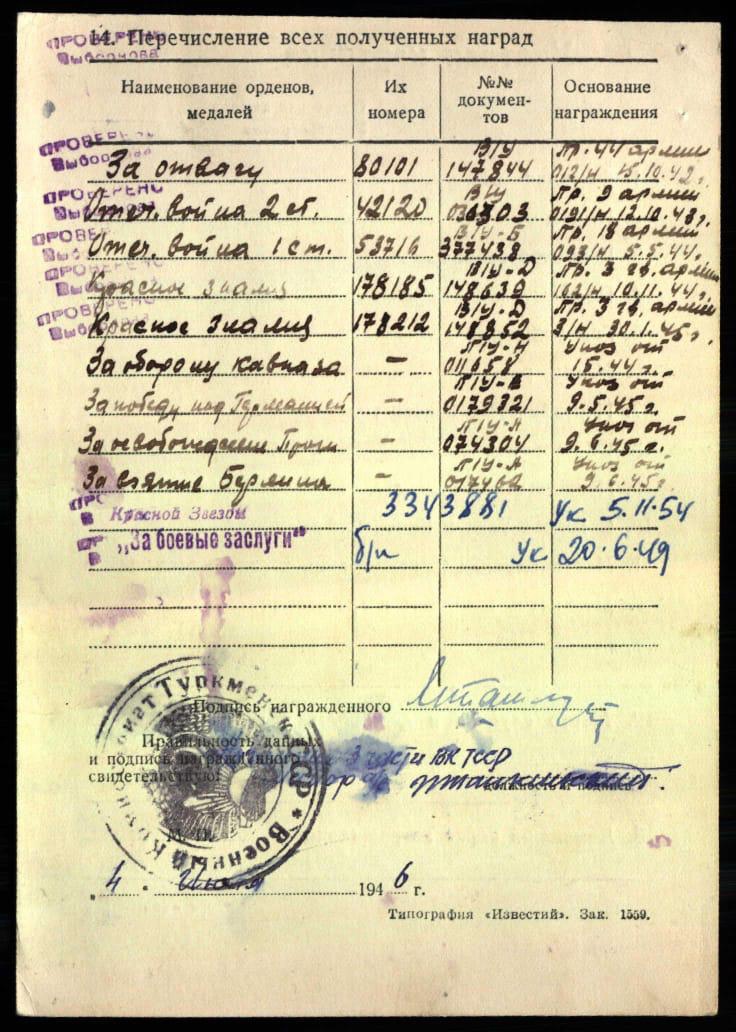 14. Перечисление всех полученных наград
Наименование орденов, медалей
Их номера
№№ документов
Основание награждения
ПРОВЕРЕНО
За отвагу 80101 В/У 147844 Пр. 44 армии 15.10.42 г.
ПРОВЕРЕНО
Отеч. война 2 ст. 42120 В/У Пр. 9 армии
ПРОВЕРЕНО
Отеч. война 1 ст. 53716 В/У-Б 377438 Пр. 18 армии 5.5.44 г.
ПРОВЕРЕНО
Красное знамя 178185 В/У-Д 148639 Пр. 3 гв. армии 10.11.44 г.
ПРОВЕРЕНО
Красное знамя 178212 В/У-Д 148852 Пр. 3 гв. армии 30.1.45 г.
За оборону Кавказа — 011658 Указ от
За победу над Германией — 0179321 Указ от 9.5.45 г.
За освобождение Праги — 074304 Указ от 9.6.45 г.
За взятие Берлина — 017462 Указ от 9.6.45 г.
Красной Звезды 3343881 Ук 5.11.54
„За боевые заслуги“ б/н Ук 20.6.49
Подпись награжденного
Правильность данных
и подпись награжденного
свидетельствую:
3 части ВК ТССР
должность и подпись
Военный Туркменской ССР
М. П.
„4“ 1946 г.
Типография «Известий». Зак. 1559.